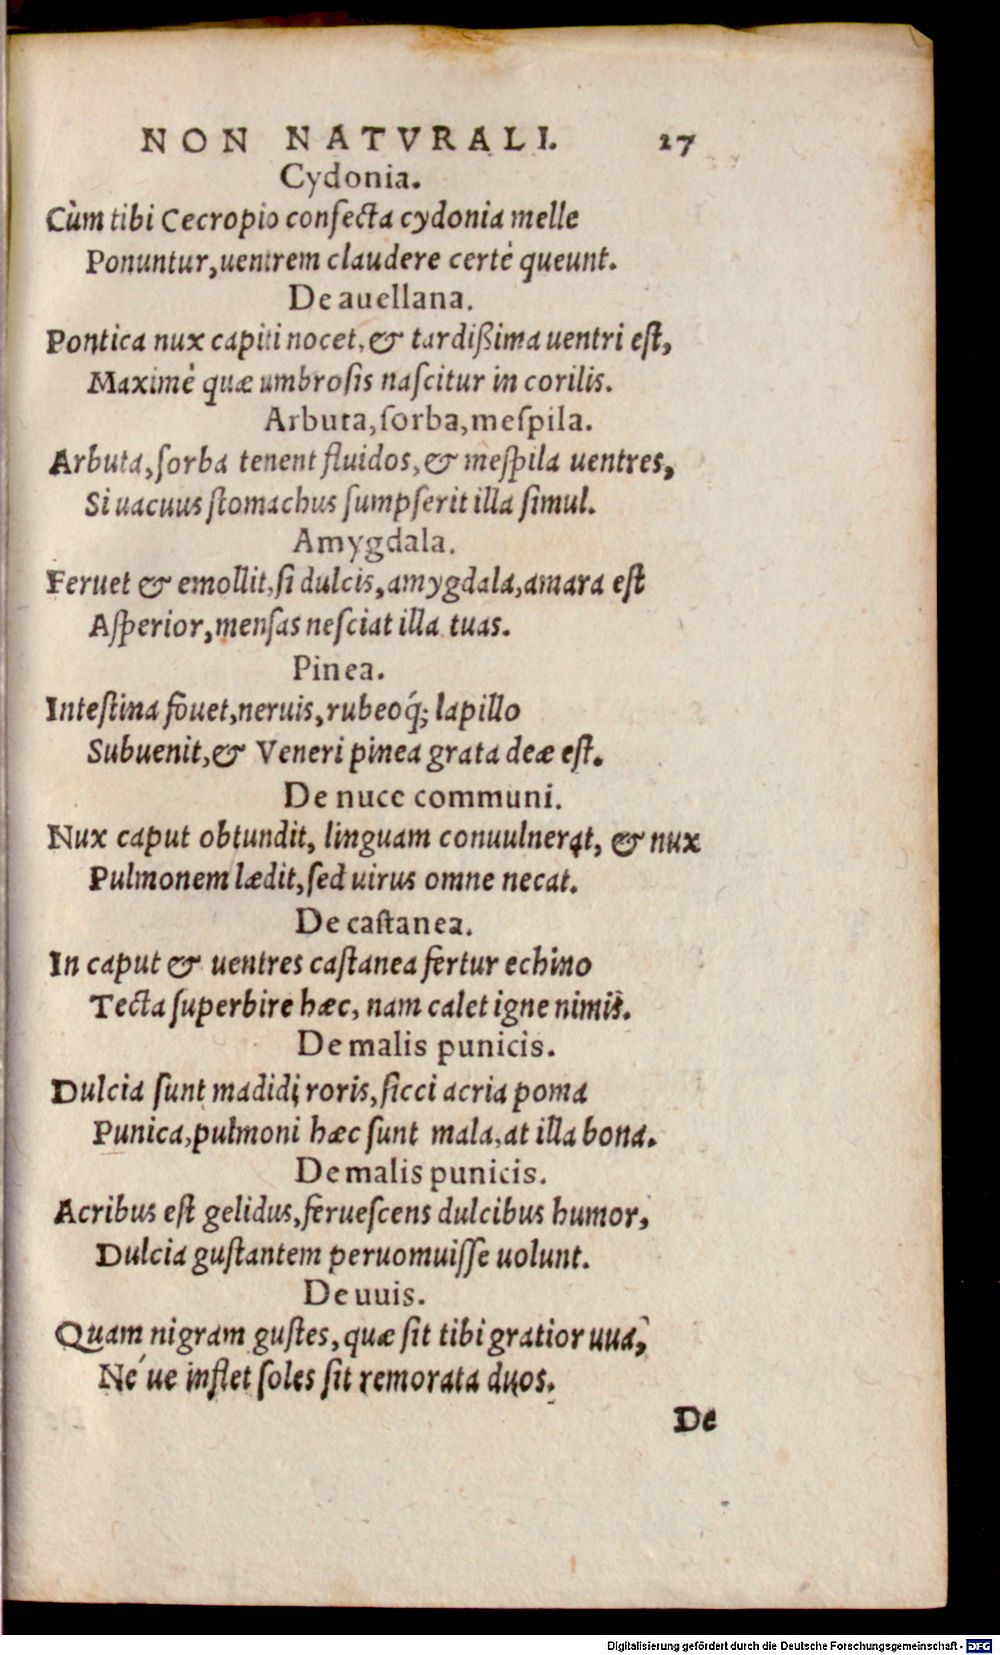 NON NATVRALI. 27
Cydonia.
Cùm tibi Cecropio conſecta cydonia melle
Ponuntur, uentrem claudere certè queunt.
De auellana.
Pontica nux capiti nocet, & tardißima uentri eſt,
Maximè quæ umbroſis naſcitur in corilis.
Arbuta, ſorba, meſpila.
Arbuta, ſorba tenent fluidos, & meſpila uentres,
Si uacuus ſtomachus ſumpſerit illa ſimul.
Amygdala.
Feruet & emollit, ſi dulcis, amygdala, amara eſt
Aſperior, menſas neſciat illa tuas.
Pinea.
Inteſtina fouet, neruis, rubeoq́; lapillo
Subuenit, & Veneri pinea grata deæ eſt.
De nuce communi.
Nux caput obtundit, linguam conuulnerat, & nux
Pulmonem lædit, ſed uirus omne necat.
De caſtanea.
In caput & uentres caſtanea fertur echino
Tecta ſuperbire hæc, nam calet igne nimis.
De malis punicis.
Dulcia ſunt madidi roris, ſicci acria poma
Punica, pulmoni hæc ſunt mala, at illa bona.
De malis punicis.
Acribus eſt gelidus, ferueſcens dulcibus humor,
Dulcia guſtantem peruomuiſſe uolunt.
De uuis.
Quam nigram guſtes, quæ ſit tibi gratior uua,
Né ue inflet ſoles ſit remorata duos.
De
Digitalisierung gefördert durch die Deutsche Forschungsgemeinschaft - DFG